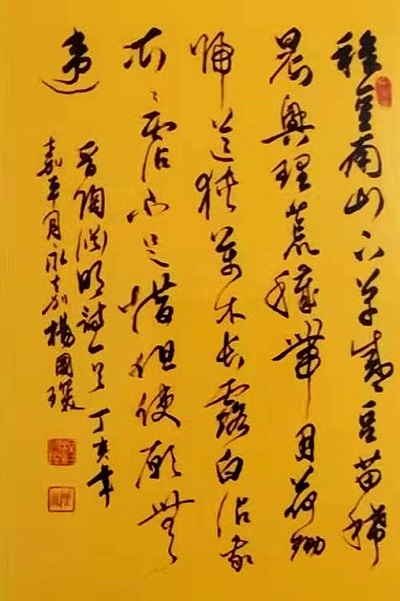 種豆南山下草盛豆苗稀
晨興理荒穢帶月荷鋤
歸道狹草木長露白沾我
衣々霑不足惜但使願無
違
晉陶淵明詩一首 丁亥年
嘉平月永嘉楊國